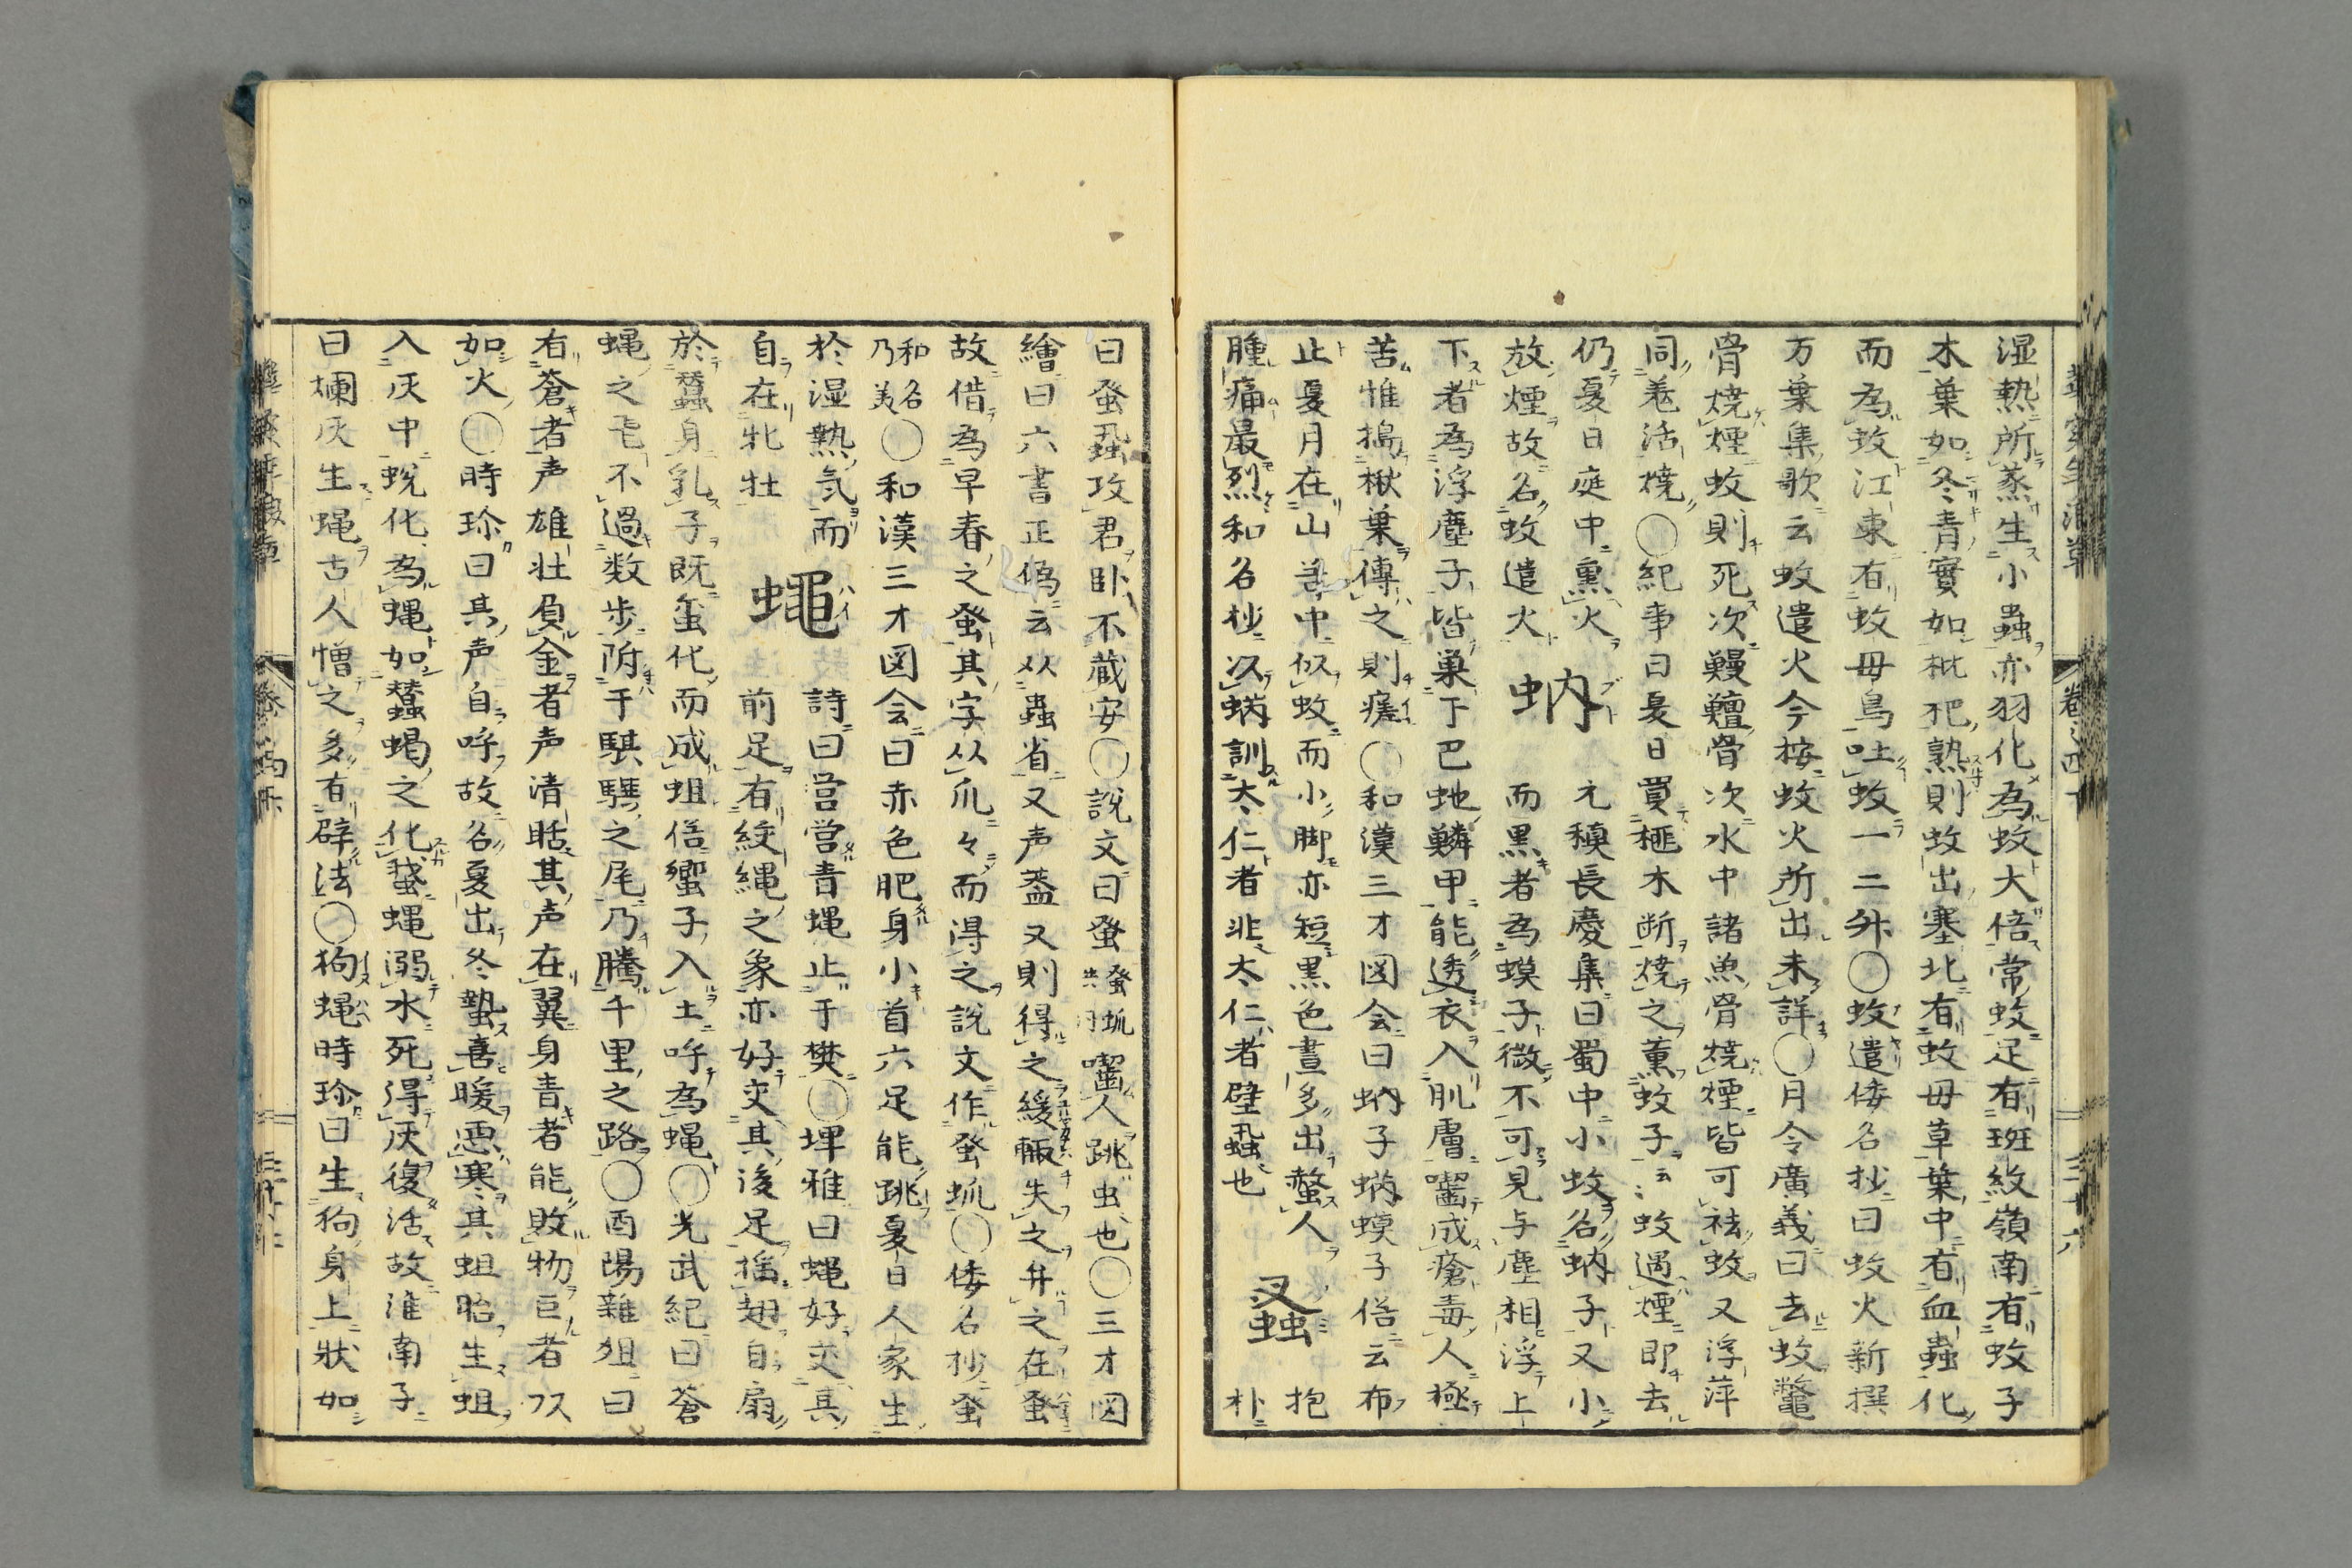 湿熱所蒸生小蟲亦羽化為蚊大倍常蚊足有斑紋嶺南有蚊子
木葉如冬青實如枇杷熟則蚊出塞北有蚊毋草葉中有血蟲化
而為蚊江東有蚊毋鳥吐蚊一二升〇蚊遣倭名抄曰蚊火新撰
万葉集歌云蚊遣火今桉蚊火所出未詳〇月令廣義曰去蚊鼈
骨焼煙蚊則死次鰻鱣骨次水中諸魚骨焼煙皆可祛蚊又浮萍
同羗活焼〇紀事曰夏日買榧木断焼之薫蚊子云蚊遇煙即去
仍夏日庭中熏火
放煙故名蚊遣火
蚋
ブト
元稹長慶集曰蜀中小蚊名蚋子又小
而黒者為蟆子微不可見与塵相浮上
下者為浮塵子皆巣下巴蛇鱗甲能透衣入肌膚囓成瘡毒人極
苦惟搗楸葉傳之則瘥〇和漢三才図会曰蚋子蜹蟆子俗云布
止夏月在山中似蚊而小脚亦短黒色晝多出螫人
腫痛最烈和名抄以蜹訓太仁者非太仁者壁蝨也
蚤
ノミ
抱
朴
曰蚤蝨攻君卧不蔵安〇説文曰蚤囓人跳虫也〇三才図
繪曰六書正偽云从蟲省又声葢又則得之緩輙失之并之在蚤
故借為早春之蚤其字从爪々而得之説文作蚤蚍〇倭名抄蚤
和名
乃美
〇和漢三才図会曰赤色肥身小首六足能跳夏日人家生
於湿熱気而
自在牝牡
蠅
ハイ
詩曰営営青蝿止于樊〇埤雅曰蝿好交其
前足有絞縄之象亦好交其後足揺翅自扇
於蠶身乳子既蚕化而成蛆俗蠁子入土哷為蝿〇光武紀曰蒼
蝿之飛不過数歩附于騏驥之尾乃騰千里之路〇酉陽雜俎曰
有蒼者声雄壮負金者声清聒其声在翼身青者能敗物巨者
如火〇時珍曰其声自呼故名夏出冬蟄喜暖悪寒其蛆胎生蛆
入灰中蛻化為蝿如蠶蝎之化蛾蝿溺水死得灰復活故淮南子
曰爛灰生蝿古人憎之多有辟法〇狗蝿時珍曰生狗身上状如